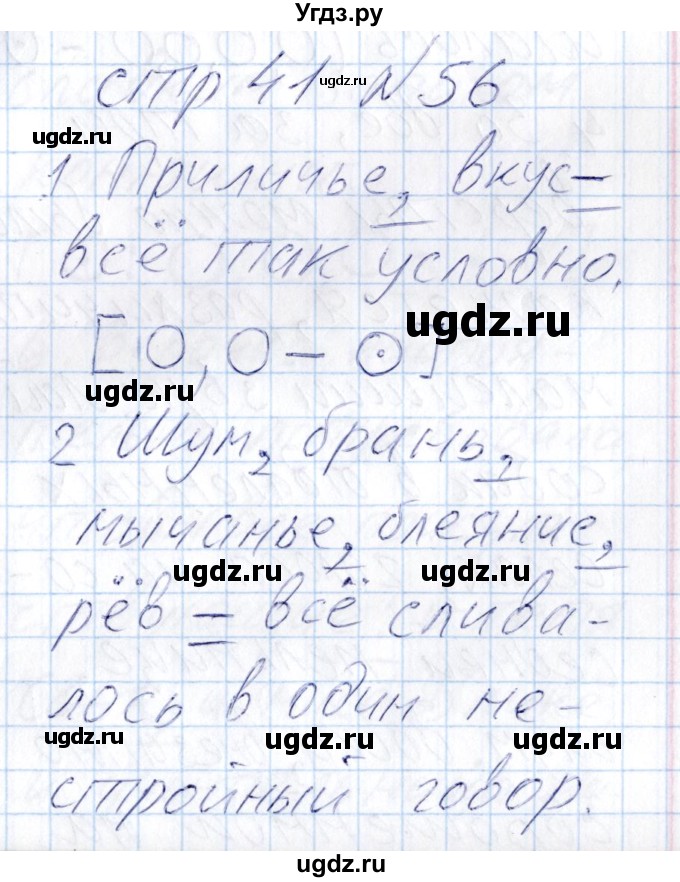 Угдз.ру
стр 41 ugdz.ru № 56
ugdz.ru
1 Приличье, вкус –
всё так условно.
ugdz.ru
[О, О – ⊙]
ugdz.ru
2 Шум, брань,
ugdz.ru
мычанье, блеяние,
ugdz.ru ugdz.ru
рёв – всё слива-
лось в один не-
ugdz.ru ugdz.ru
стройный говор.
ugdz.ru